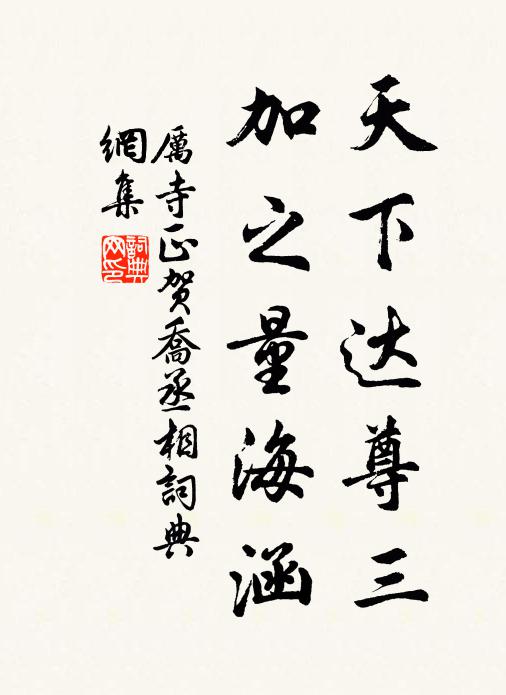 天下达尊三
加之量海涵
厲寺正贺喬丞相詞典
網集
詞典網印